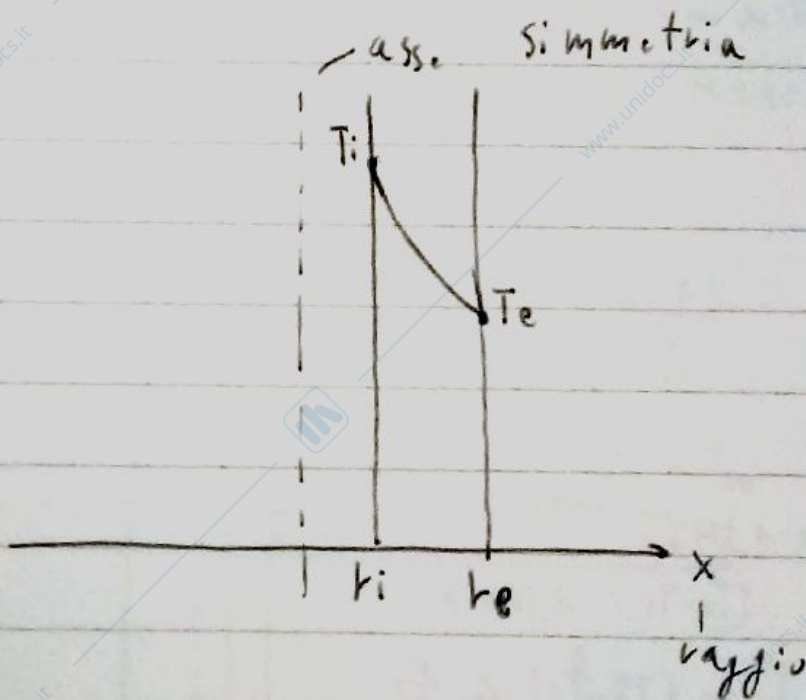 asse simmetria
Ti
Te
ri
re
x
raggio
www.unidocs.it